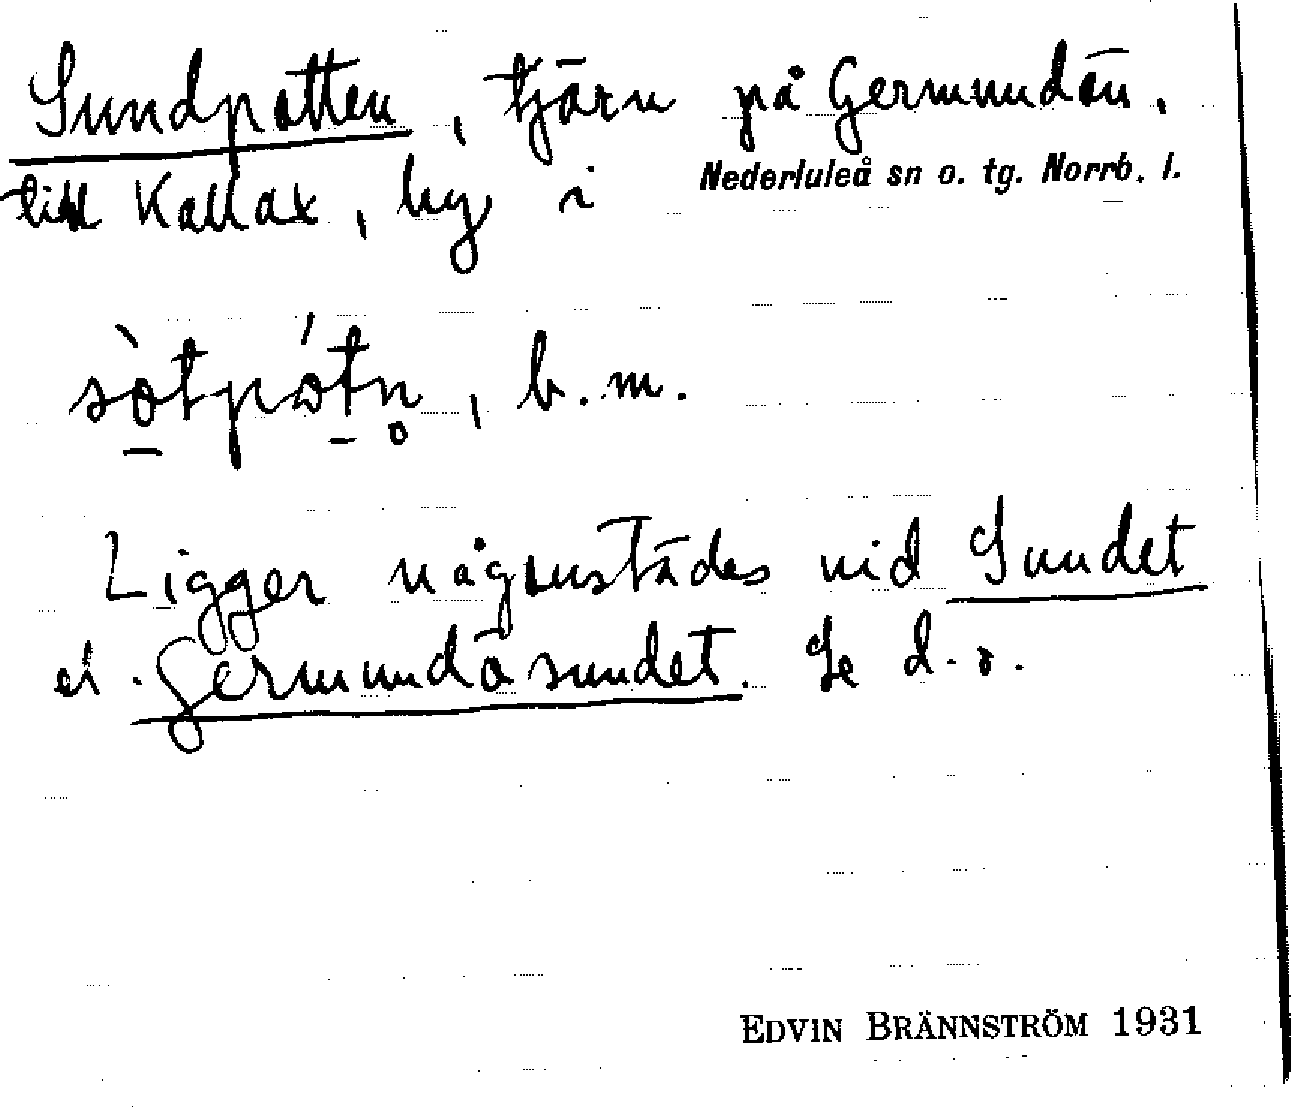 Sundpotten, tjärn på Germundön,
till Kallax, by i Nederluleå sn o. tg. Norrb. l.
sòtpótn̥, b.m.
Ligger någonstädes vid Sundet
el. Germundösundet. Se d.o.
EDVIN BRÄNNSTRÖM 1931